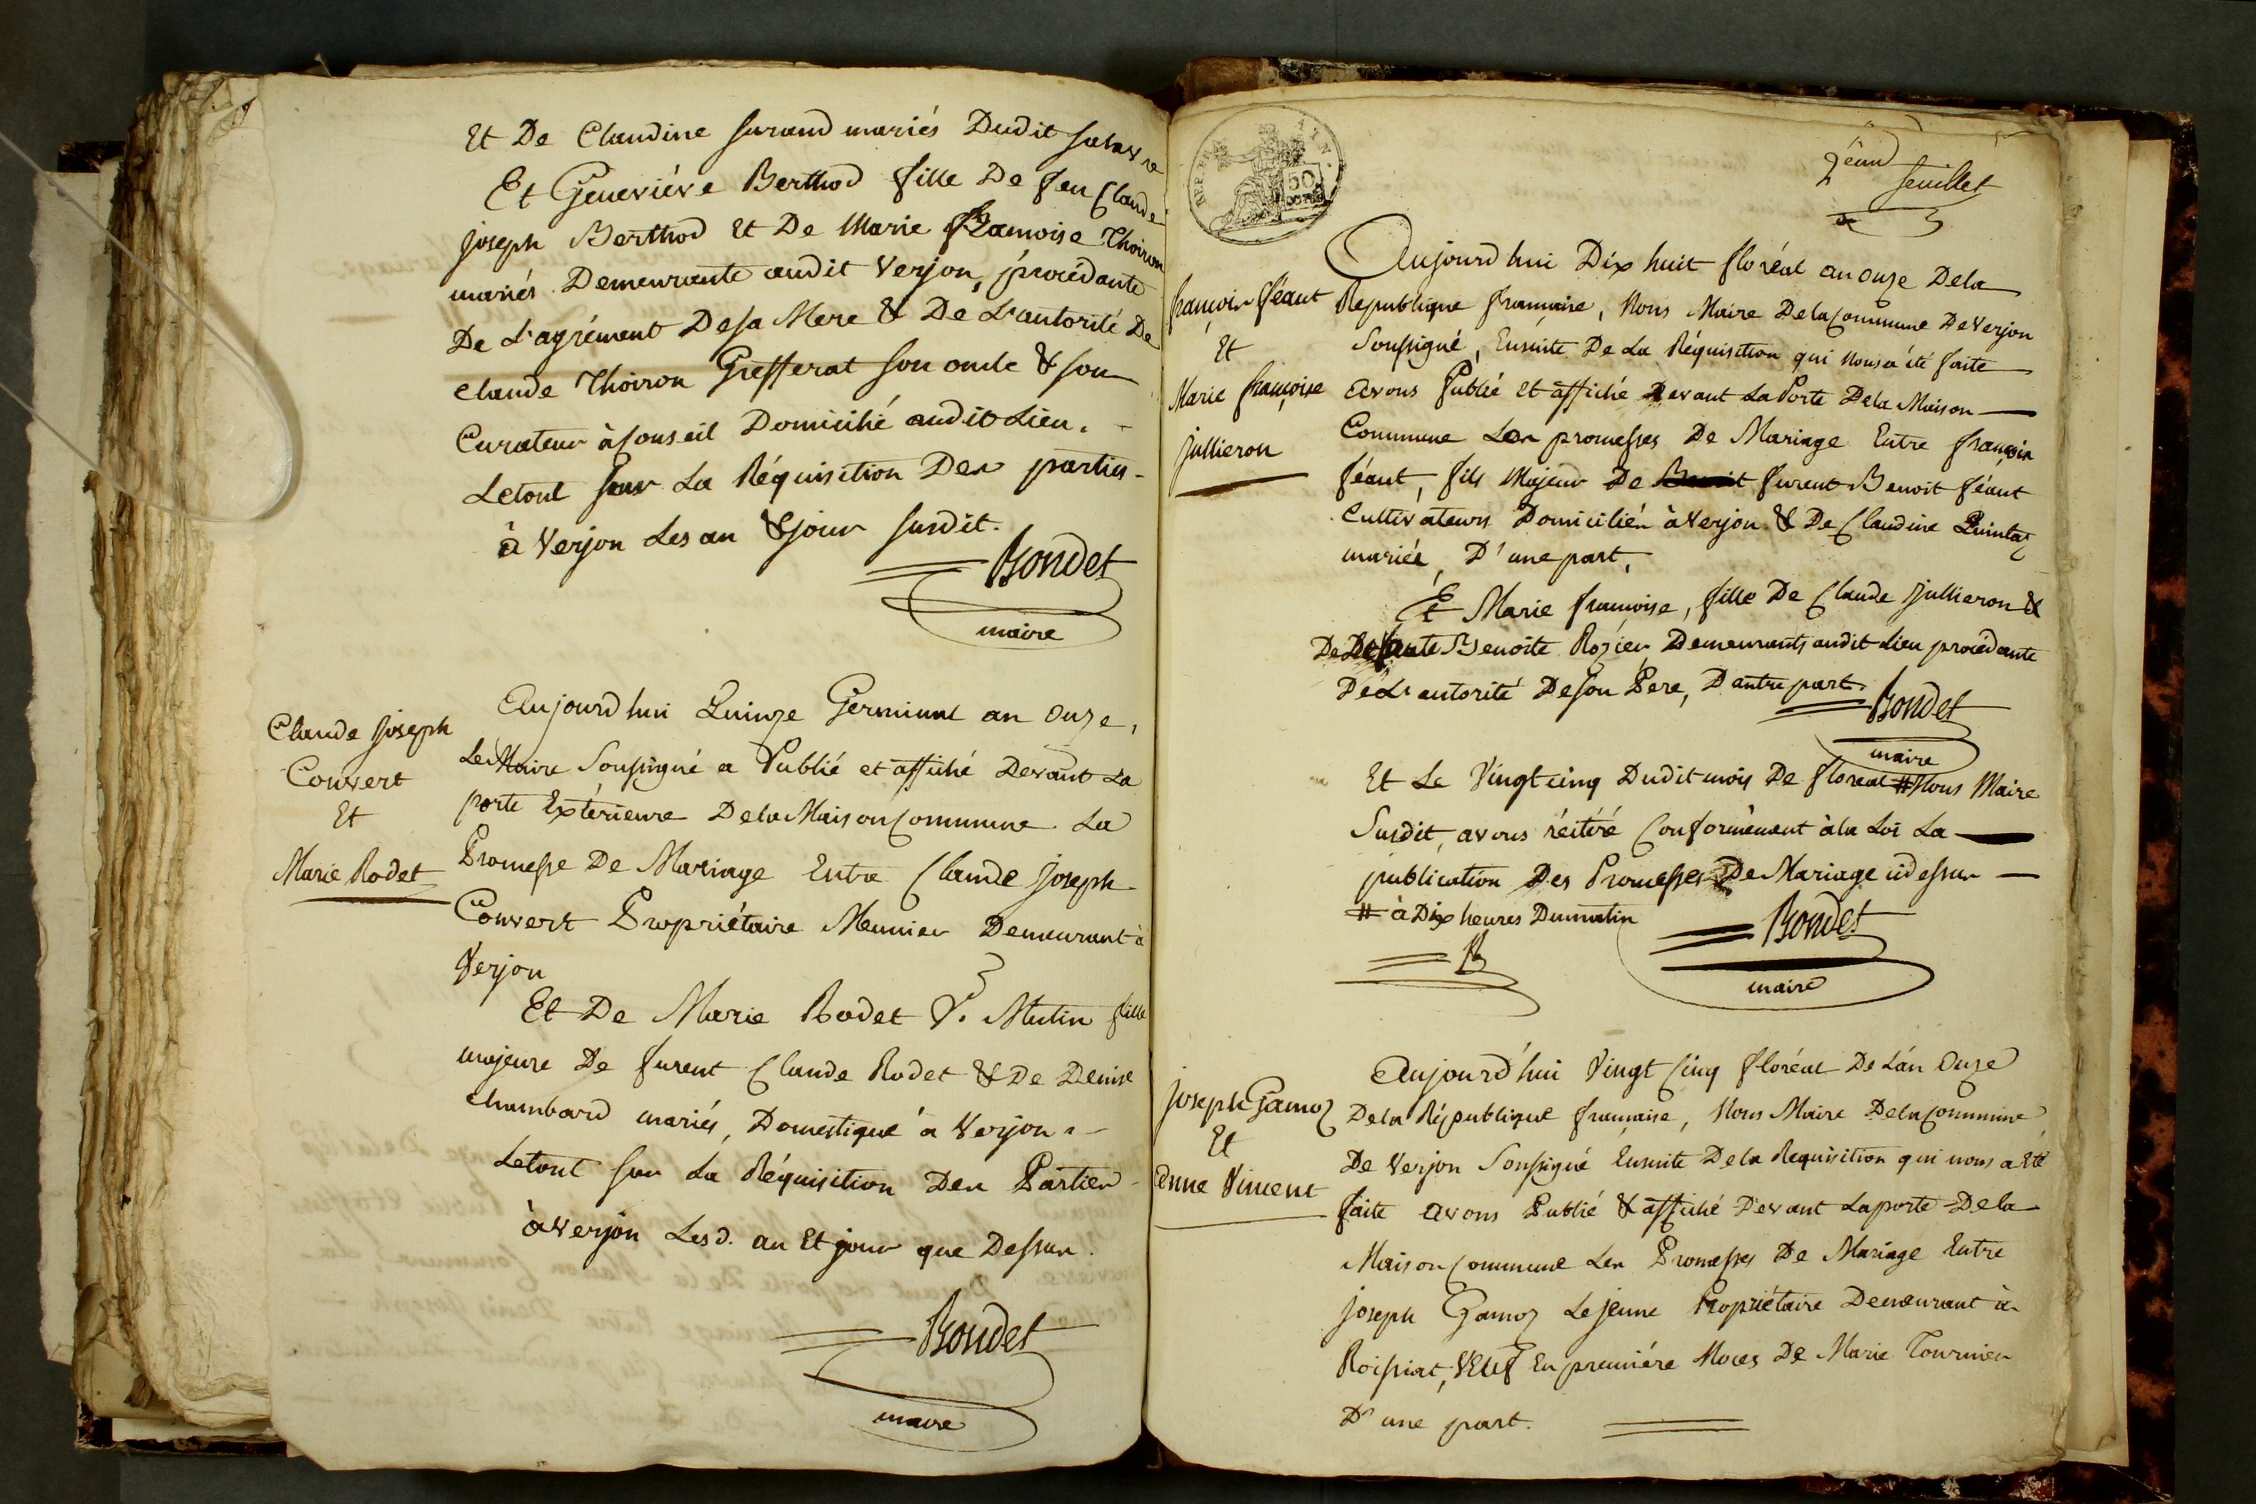 Et De Claudine furand mariés Dudit salavre
Et Geneviéve Berthod fille De feu Claude
joseph Berthod Et De Marie françoise Thoiron
mariés Demeurante audit Verjon, procédante
De L'agrément De sa Mere & De L'autorité De
Claude Thoiron Grefferat son oncle & son
Curateur à Conseil Domicilié audit Lieu.
Letout sur La Réquisition Des parties
à Verjon Les an & jour susdit.
Bondet
maire
Claude Joseph
Convert
Et
Marie Rodet
Aujourd hui Quinze Germinal an onze,
Le Maire Soussigné a Publié et affiché Devant La
porte Extérieure Dela Maison Commune La
Promesse De Mariage Entre Claude joseph
Convert Propriétaire Meunier Demeurant à
Verjon
Et De Marie Rodet Ve. Mutin fille
majeure De furent Claude Rodet & De Denise
Chambard mariés, Domestique à Verjon
Letout sur La Réquisition Des Parties
à Verjon Lesd. an Et jour que Dessus.
Bondet
maire
50
2eme
feuillet
françois féaut
Et
Marie françoise
jullieron
Aujourd hui Dix huit floréal an onze Dela
Republique francaise, Nous Maire Dela Commune De Verjon
Soussigné, Ensuite De La Réquisition qui nous a été faite
avons Publié et affiché Devant La Porte Dela Maison
Commune Les promesses De Mariage Entre françois
féaut, fils Majeur De furent Benoit féaut
Cultivateurs Domiciliés à Verjon & De Claudine Quintaz
mariés, D'une part,
Et Marie françoise, fille De Claude Jullieron &
De Defunte Benoite Rozier Demeurants audit Lieu procédante
De L'autorité De son Pere, D'autre part.
Bondet
maire
Et Le Vingt cinq Dudit mois De floreal # Nous Maire
Susdit, avons réitéré Conformément à la Loi La
publication Des Promesses De Mariage cidessus
# à Dix heures Dumatin
B
Bondet
maire
joseph Gamoz
Et
Anne Vincent
Aujourd'hui Vingt Cinq floréal De L'an Onze
Dela République française, Nous Maire Dela Commune
De Verjon Soussigné Ensuite Dela Requisition qui nous a Eté
faite avons Publié & affiché Devant Laporte Dela
Maison Commune Les Promesses De Mariage Entre
joseph Gamoz Lejeune Propriétaire Demeurant à
Roissiat, veuf En premiére Noces De Marie Tournier
D'une part.